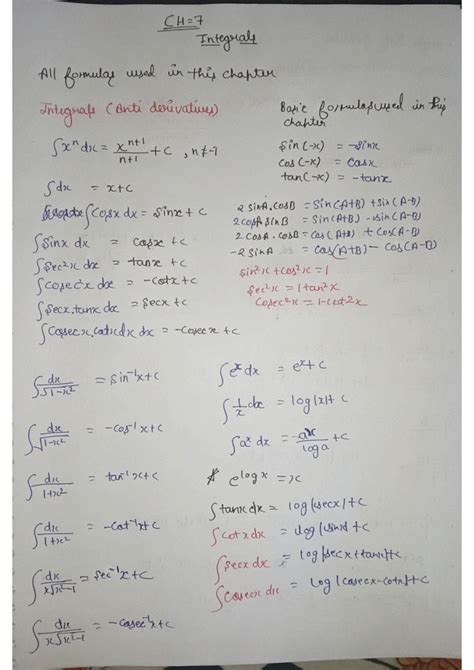 CH=7
Integrals
All formulas used in this chapter
Integrals (Anti derivatives)
∫x^n dx = x^(n+1)/(n+1) + C , n≠-1
∫dx = x+C
∫Cosx dx = Sinx + C
∫Sinx dx = Cosx + C
∫Sec²x dx = tanx + C
∫Cosec²x dx = -Cotx + C
∫Secx.tanx dx = Secx + C
∫Cosec x.Cotx dx dx = -Cosec x + C
Basic formulas used in this
chapter
Sin(-x) = -Sinx
Cos(-x) = Cosx
tan(-x) = -tanx
2 SinA.CosB = Sin(A+B) + Sin(A-B)
2 CosA SinB = Sin(A+B) - Sin(A-B)
2 CosA.CosB = Cos(A+B) + Cos(A-B)
-2 SinA = Cos(A+B) - Cos(A-B)
Sin²x + Cos²x = 1
Sec²x = 1 tan²x
Cosec²x = 1-Cot2x
∫dx/√1-x² = Sin⁻¹x + C
∫dx/√1-x² = -Cos⁻¹x + C
∫dx/1+x² = tan⁻¹x + C
∫dx/1+x² = -Cot⁻¹x + C
∫dx/x√x²-1 = Sec⁻¹x + C
∫dx/x√x²-1 = -Cosec⁻¹x + C
∫e^x dx = e^x + C
∫1/x dx = log|x| + C
∫a^x dx = a^x/log a + C
e^log x = x
∫tanx dx = log|Secx| + C
∫Cotx dx = log|Sinx| + C
∫Secx dx = log|Secx + tanx| + C
∫Cosecx dx = log|Cosecx - Cotx| + C